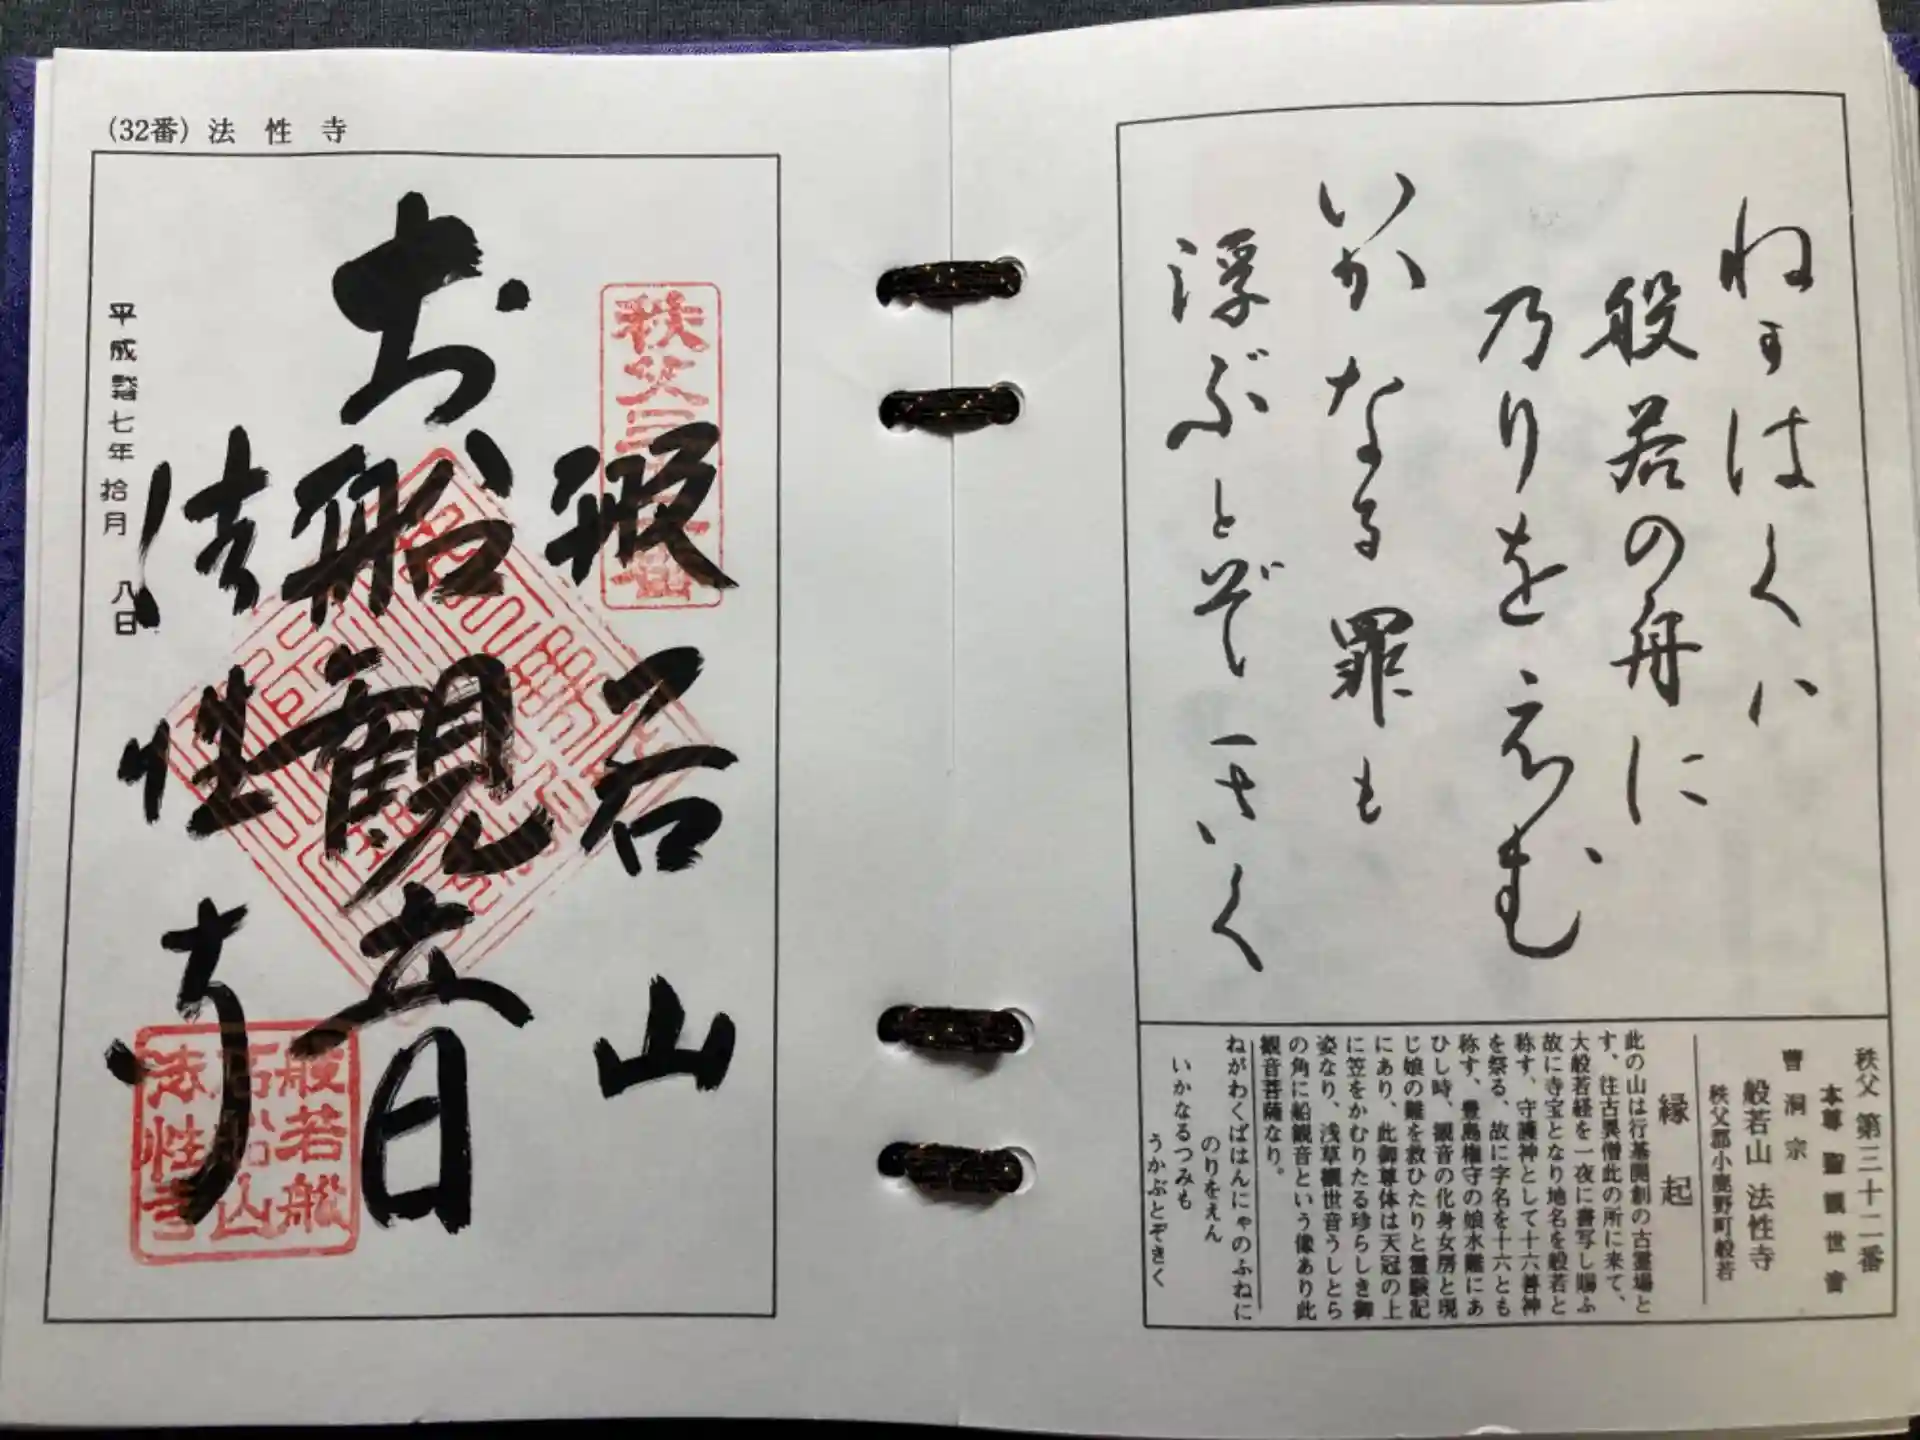 (32番) 法性寺
秩父三十二番
般若山
お船観音
法性寺
平成弐七年拾月八日
般若船
石船山
法性寺
ねがはくハ
般若の舟に
乃りをゑむ
いかなる罪も
浮ぶとぞきく
秩父 第三十二番
本尊 聖観世音
曹洞宗
般若山 法性寺
秩父郡小鹿野町般若
縁起
此の山は行基開創の古霊場と
す、往古異僧此の所に来て、
大般若経を一夜に書写し賜ふ
故に寺宝となり地名を般若と
称す、守護神として十六善神
を祭る、故に字名を十六とも
称す、豊島権守の娘水難にあ
ひし時、観音の化身女房と現
じ娘の難を救ひたりと霊験記
にあり、此御尊体は天冠の上
に笠をかむりたる珍らしき御
姿なり、浅草観世音うしとら
の角に船観音という像あり此
観音菩薩なり。
ねがわくばはんにゃのふねに
のりをえん
いかなるつみも
うかぶとぞきく